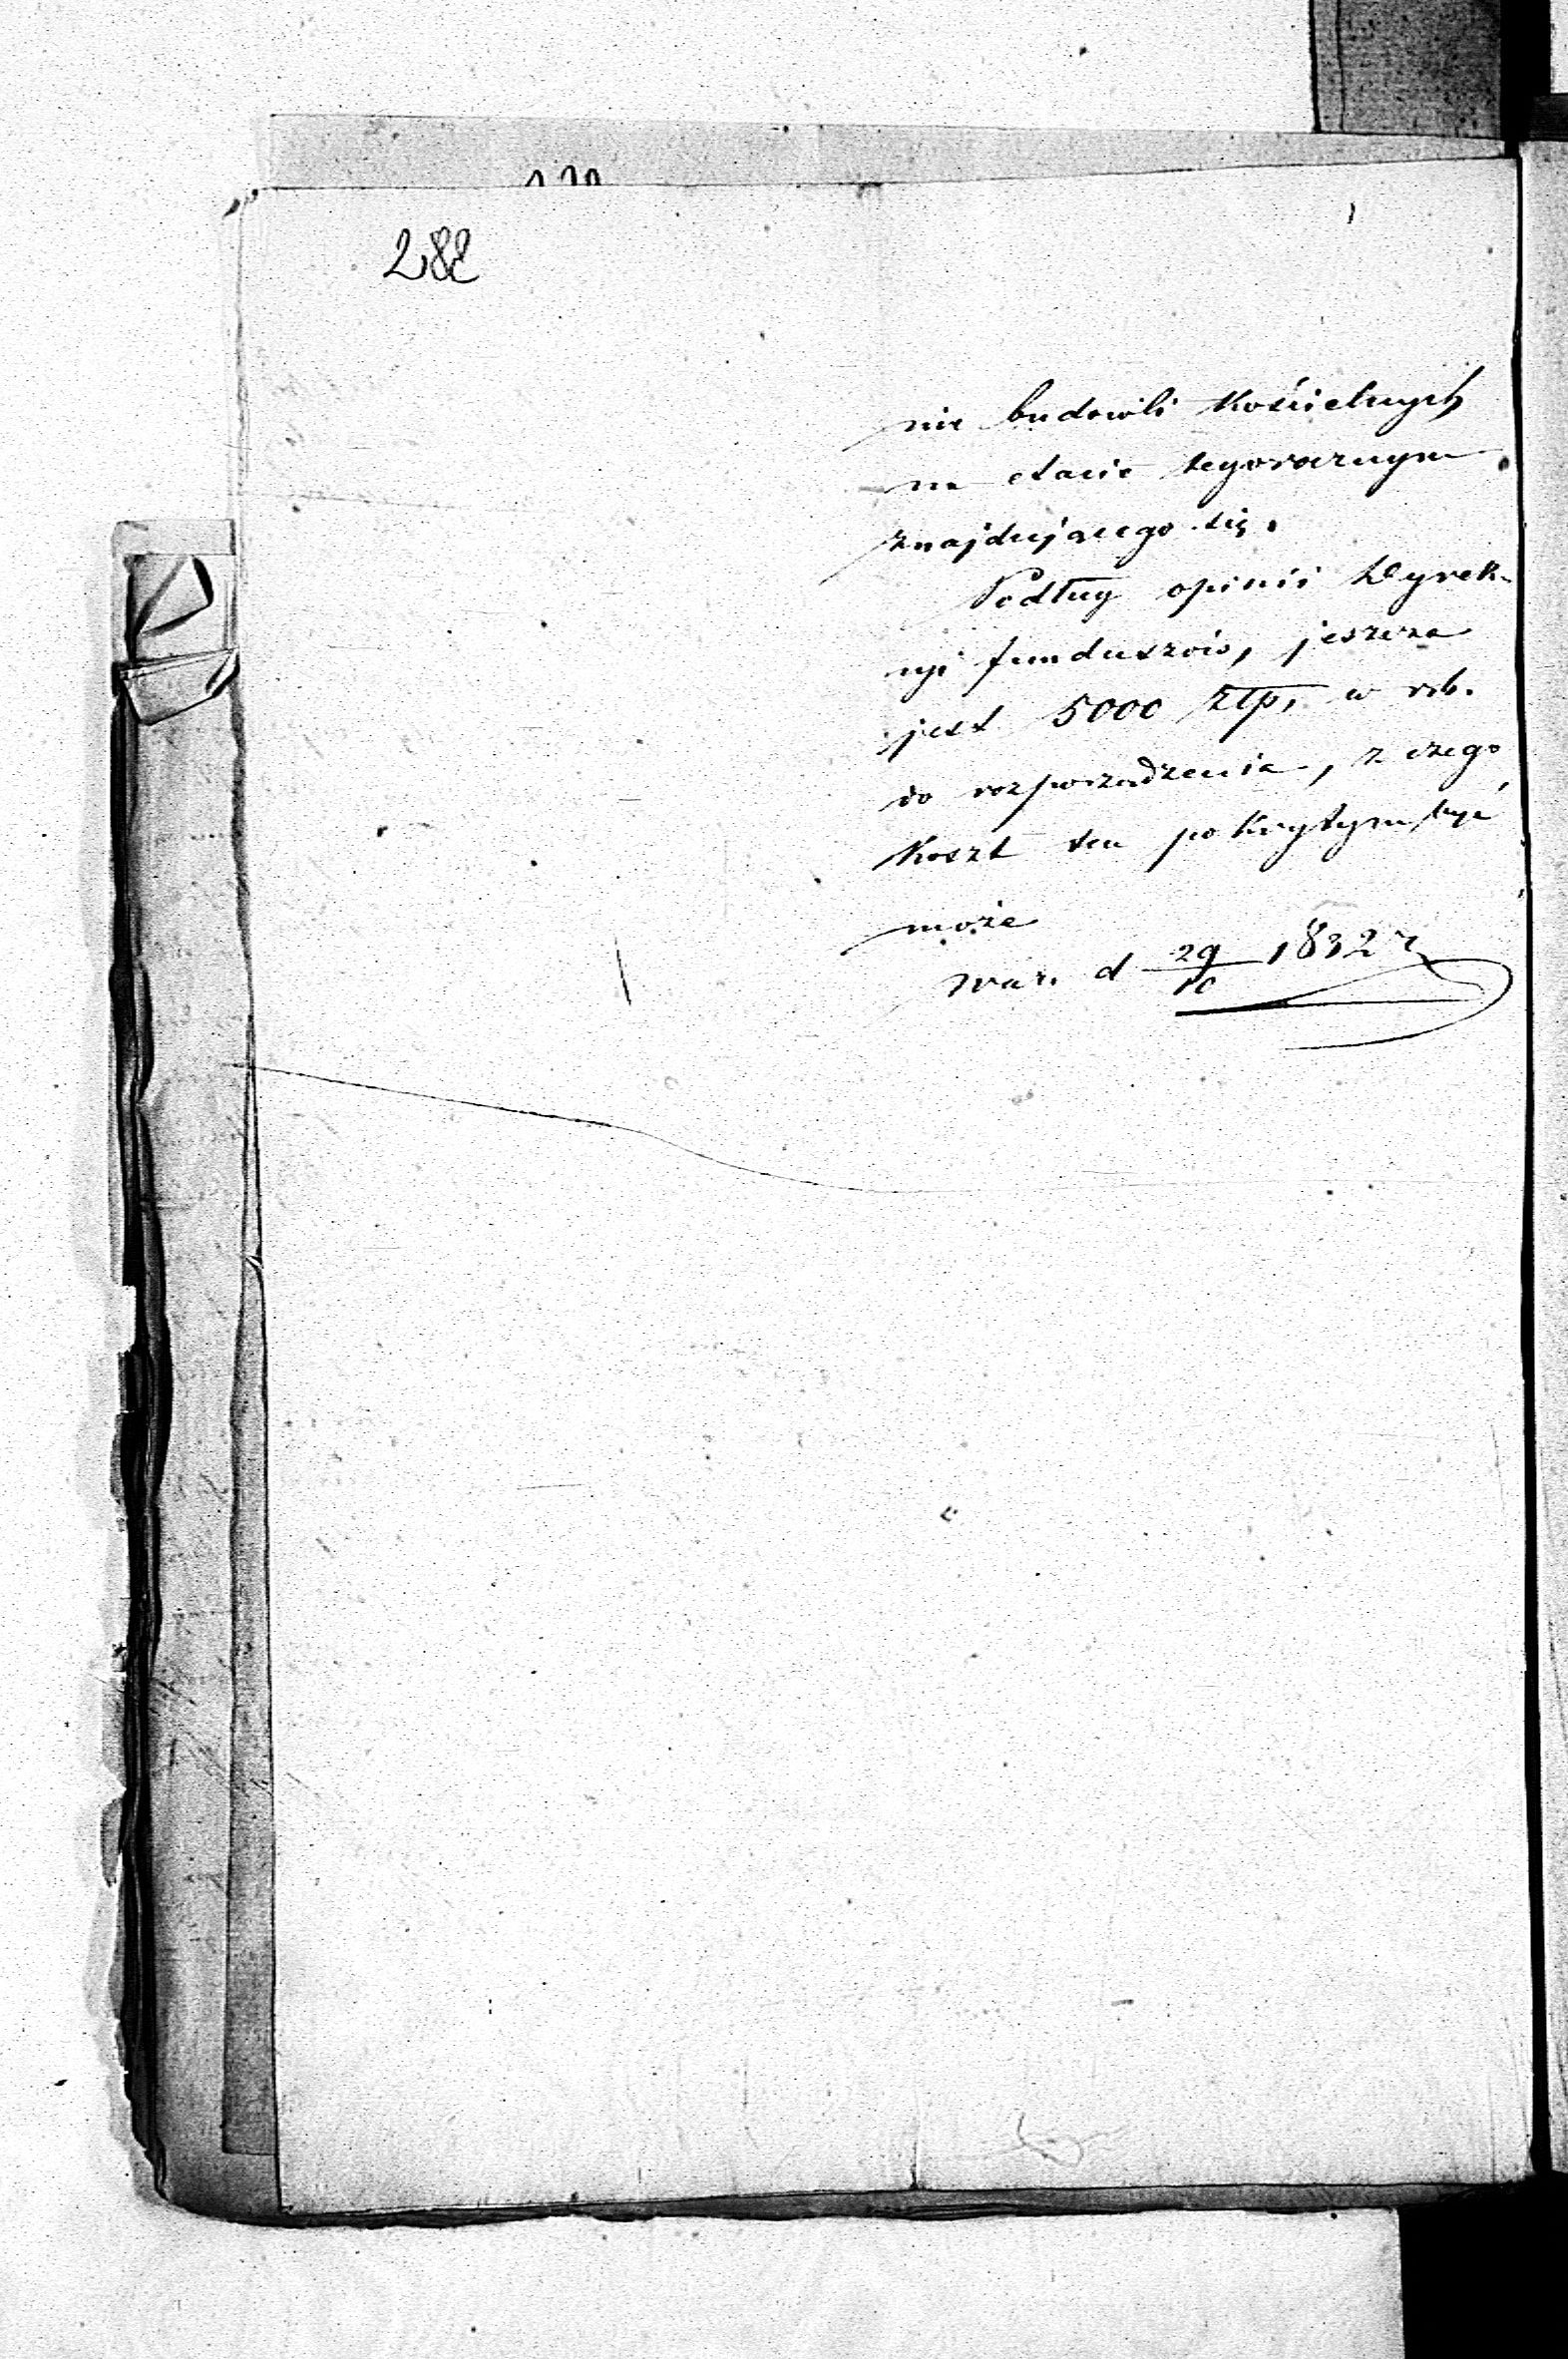 282
nie budowli Kościelnych
na etacie tegorocznym
znajdującego się.
Podług opinii Dyrek-
cyi funduszów, jeszcze
jest 5000 Złp, w rb.
do rozporządzenia, z czego
Koszt ten pokrytym być
może
War. d 29/10 1832 r